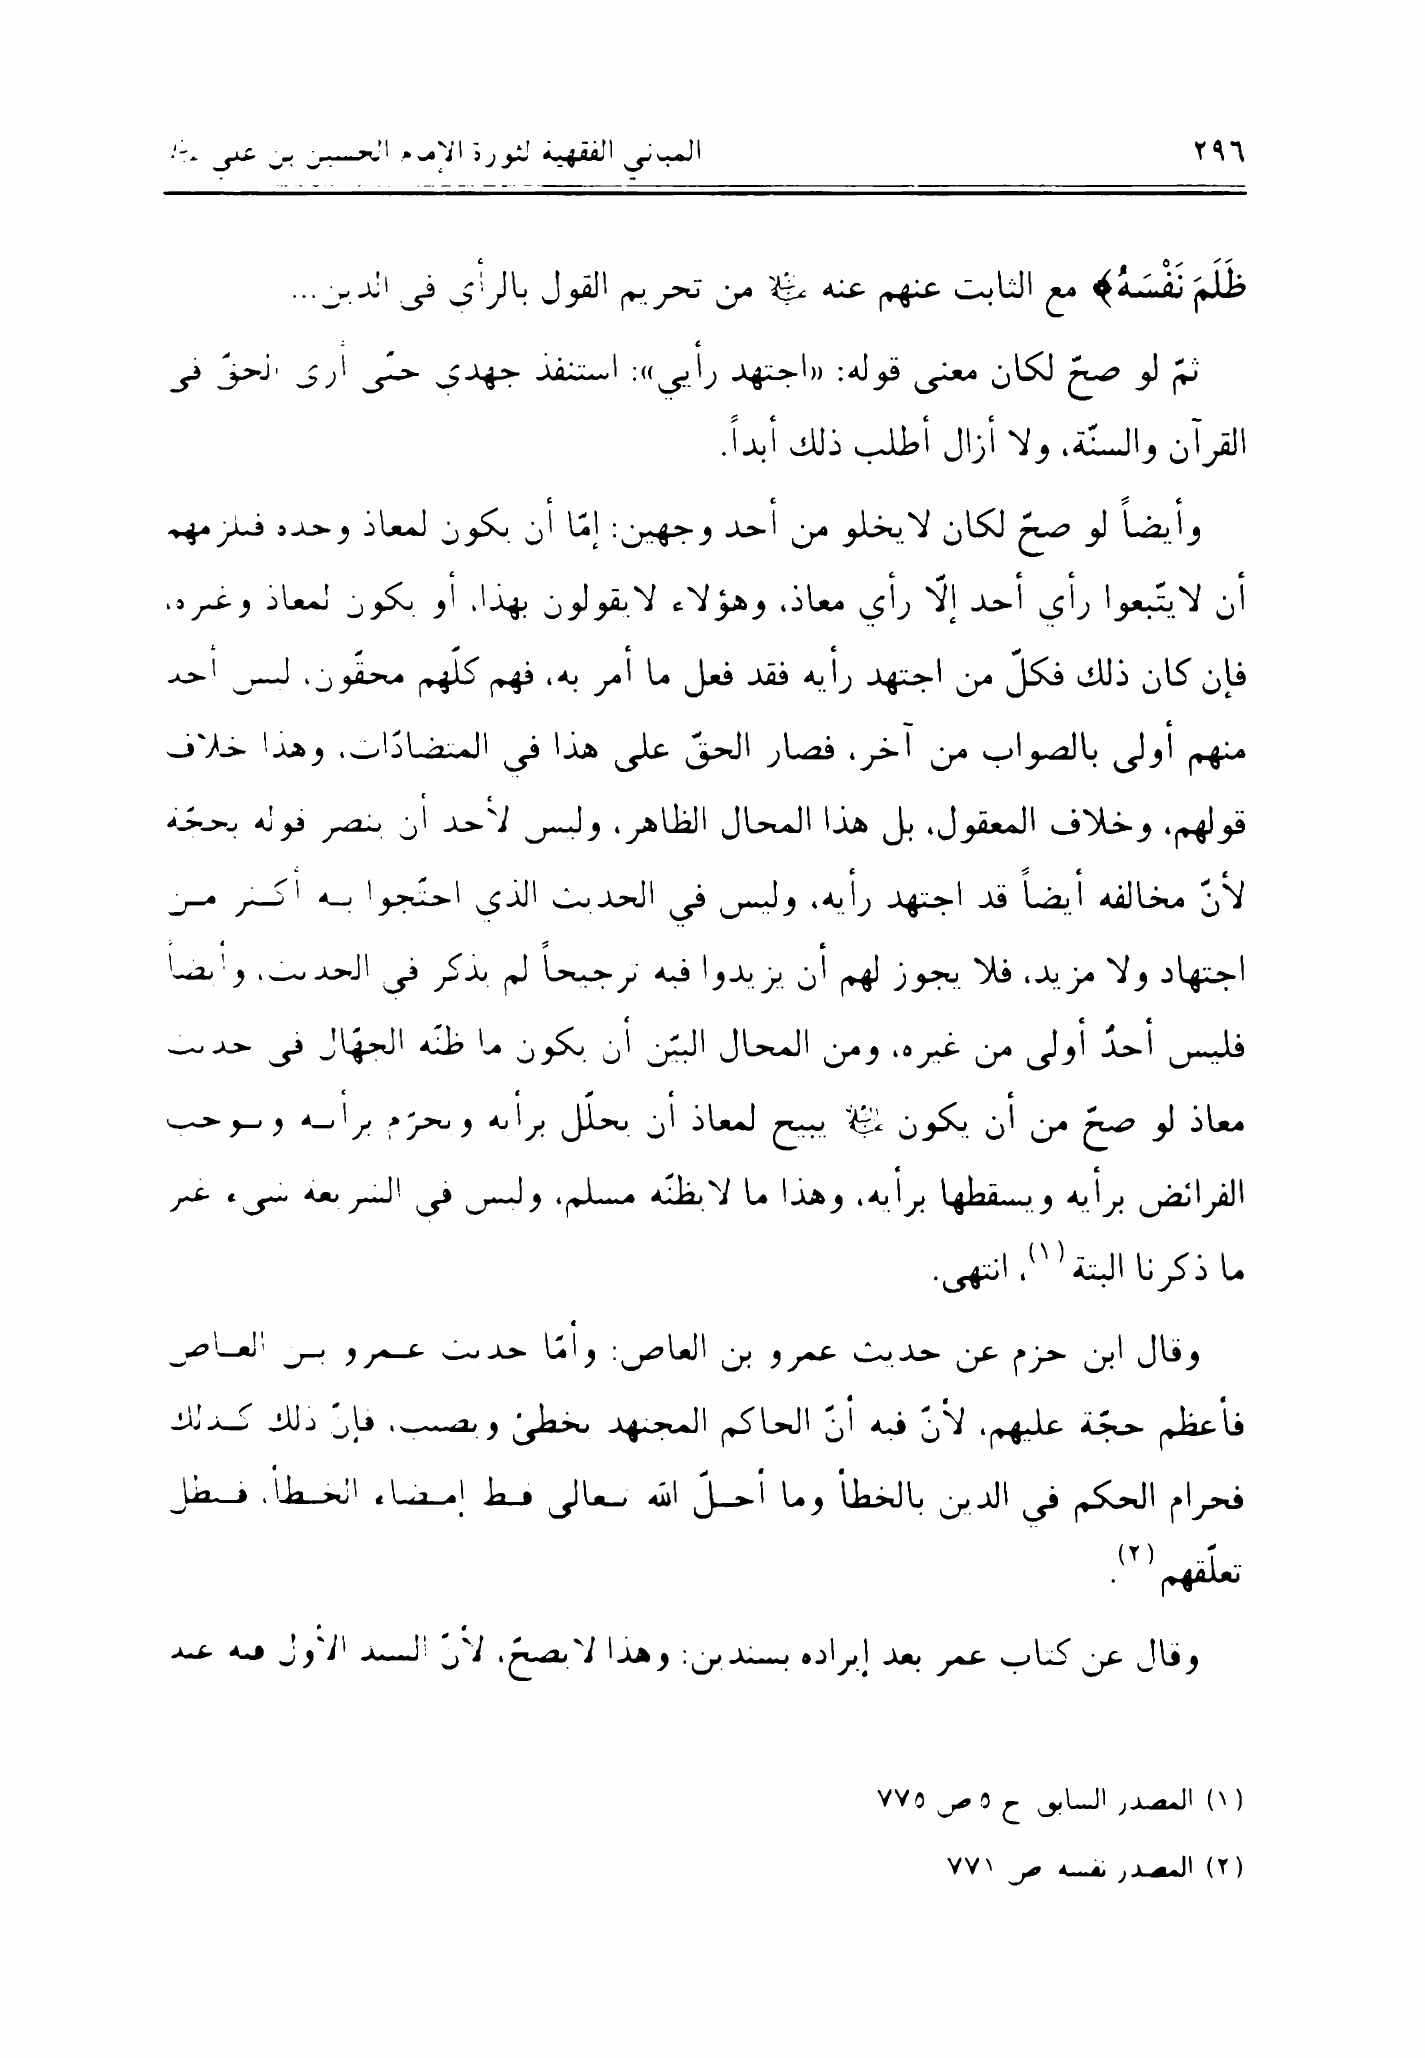 ٢٩٦
المباني الفقهية لثورة الإمام الحسين بن علي
ظَلَمَ نَفْسَهُ﴾ مع الثابت عنهم عنه ﷺ من تحريم القول بالرأي في الدين...
ثمّ لو صحّ لكان معنى قوله: «اجتهد رأيي»: استنفذ جهدي حتّى أرى الحقّ في
القرآن والسنّة، ولا أزال أطلب ذلك أبداً.
وأيضاً لو صحّ لكان لايخلو من أحد وجهين: إمّا أن يكون لمعاذ وحده فيلزمهم
أن لايتّبعوا رأي أحد إلّا رأي معاذ، وهؤلاء لايقولون بهذا، أو يكون لمعاذ وغيره،
فإن كان ذلك فكلّ من اجتهد رأيه فقد فعل ما أمر به، فهم كلّهم محقّون، ليس أحد
منهم أولى بالصواب من آخر، فصار الحقّ على هذا في المتضادّات، وهذا خلاف
قولهم، وخلاف المعقول، بل هذا المحال الظاهر، وليس لأحد أن ينصر قوله بحجّة
لأنّ مخالفه أيضاً قد اجتهد رأيه، وليس في الحديث الذي احتّجوا به أكثر من
اجتهاد ولا مزيد، فلا يجوز لهم أن يزيدوا فيه ترجيحاً لم يذكر في الحديث، وأيضاً
فليس أحدٌ أولى من غيره، ومن المحال البيّن أن يكون ما ظنّه الجهّال في حديث
معاذ لو صحّ من أن يكون ﷺ يبيح لمعاذ أن يحلّل برأيه ويحرّم برأيه ويوجب
الفرائض برأيه ويسقطها برأيه، وهذا ما لايظنّه مسلم، وليس في الشريعة شيء غير
ما ذكرنا البتة(١)، انتهى.
وقال ابن حزم عن حديث عمرو بن العاص: وأمّا حديث عمرو بن العاص
فأعظم حجّة عليهم، لأنّ فيه أنّ الحاكم المجتهد يخطئ ويصيب، فإنّ ذلك كذلك
فحرام الحكم في الدين بالخطأ وما أحلّ الله تعالى قط إمضاء الخطأ، فبطل
تعلّقهم(٢).
وقال عن كتاب عمر بعد إيراده بسندين: وهذا لايصحّ، لأنّ السند الأول فيه عبد
(١) المصدر السابق ج ٥ ص ٧٧٥
(٢) المصدر نفسه ص ٧٧١